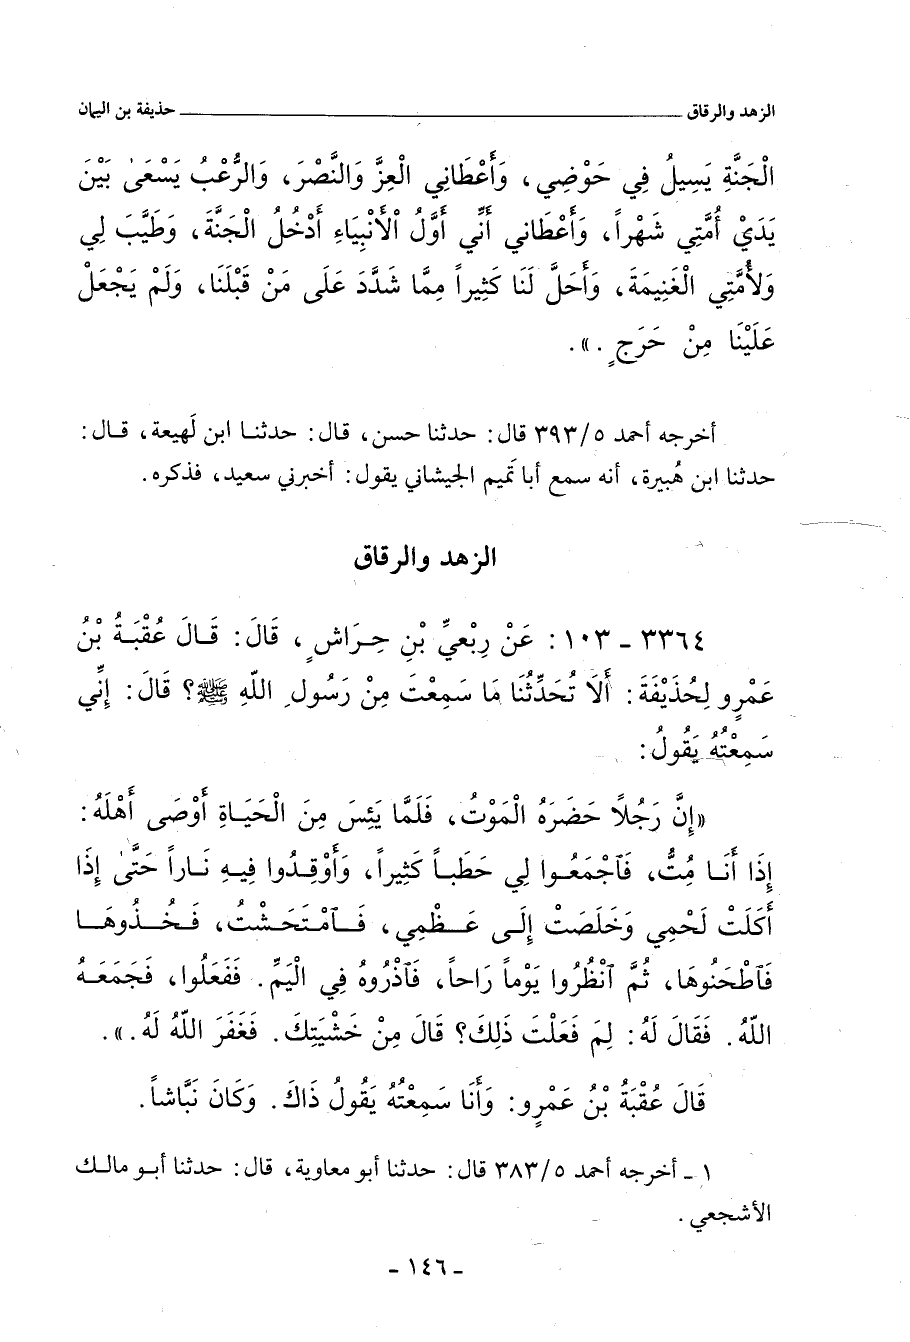 الزهد والرقاق ــــــــــ حذيفة بن اليمان
الْجَنَّةِ يَسِيلُ فِي حَوْضِي، وَأَعْطَانِي الْعِزَّ وَالنَّصْرَ، وَالرُّعْبُ يَسْعَىٰ بَيْنَ
يَدَيْ أُمَّتِي شَهْراً، وَأَعْطَانِي أَنِّي أَوَّلُ الْأَنْبِيَاءِ أَدْخُلُ الْجَنَّةَ، وَطَيَّبَ لِي
وَلأُمَّتِي الْغَنِيمَةَ، وَأَحَلَّ لَنَا كَثِيراً مِمَّا شَدَّدَ عَلَى مَنْ قَبْلَنَا، وَلَمْ يَجْعَلْ
عَلَيْنَا مِنْ حَرَجٍ.».
أخرجه أحمد ٣٩٣/٥ قال: حدثنا حسن، قال: حدثنا ابن لَهيعة، قال:
حدثنا ابن هُبيرة، أنه سمع أبا تميم الجيشاني يقول: أخبرني سعيد، فذكره.
الزهد والرقاق
٣٣٦٤ ـ ١٠٣: عَنْ رِبْعِيِّ بْنِ حِرَاشٍ، قَالَ: قَالَ عُقْبَةُ بْنُ
عَمْرٍو لِحُذَيْفَةَ: أَلَا تُحَدِّثُنَا مَا سَمِعْتَ مِنْ رَسُولِ اللَّهِ ﷺ؟ قَالَ: إِنِّي
سَمِعْتُهُ يَقُولُ:
«إِنَّ رَجُلاً حَضَرَهُ الْمَوْتُ، فَلَمَّا يَئِسَ مِنَ الْحَيَاةِ أَوْصَى أَهْلَهُ:
إِذَا أَنَا مِتُّ، فَٱجْمَعُوا لِي حَطَباً كَثِيراً، وَأَوْقِدُوا فِيهِ نَاراً حَتَّىٰ إِذَا
أَكَلَتْ لَحْمِي وَخَلَصَتْ إِلَى عَظْمِي، فَٱمْتَحَشْتُ، فَخُذُوهَا
فَٱطْحَنُوهَا، ثُمَّ ٱنْظُرُوا يَوْماً رَاحاً، فَٱذْرُوهُ فِي الْيَمِّ. فَفَعَلُوا، فَجَمَعَهُ
اللَّهُ. فَقَالَ لَهُ: لِمَ فَعَلْتَ ذٰلِكَ؟ قَالَ مِنْ خَشْيَتِكَ. فَغَفَرَ اللَّهُ لَهُ.».
قَالَ عُقْبَةُ بْنُ عَمْرٍو: وَأَنَا سَمِعْتُهُ يَقُولُ ذَاكَ. وَكَانَ نَبَّاشاً.
١ ـ أخرجه أحمد ٣٨٣/٥ قال: حدثنا أبو معاوية، قال: حدثنا أبو مالك
الأشجعي.
ـ ١٤٦ ـ